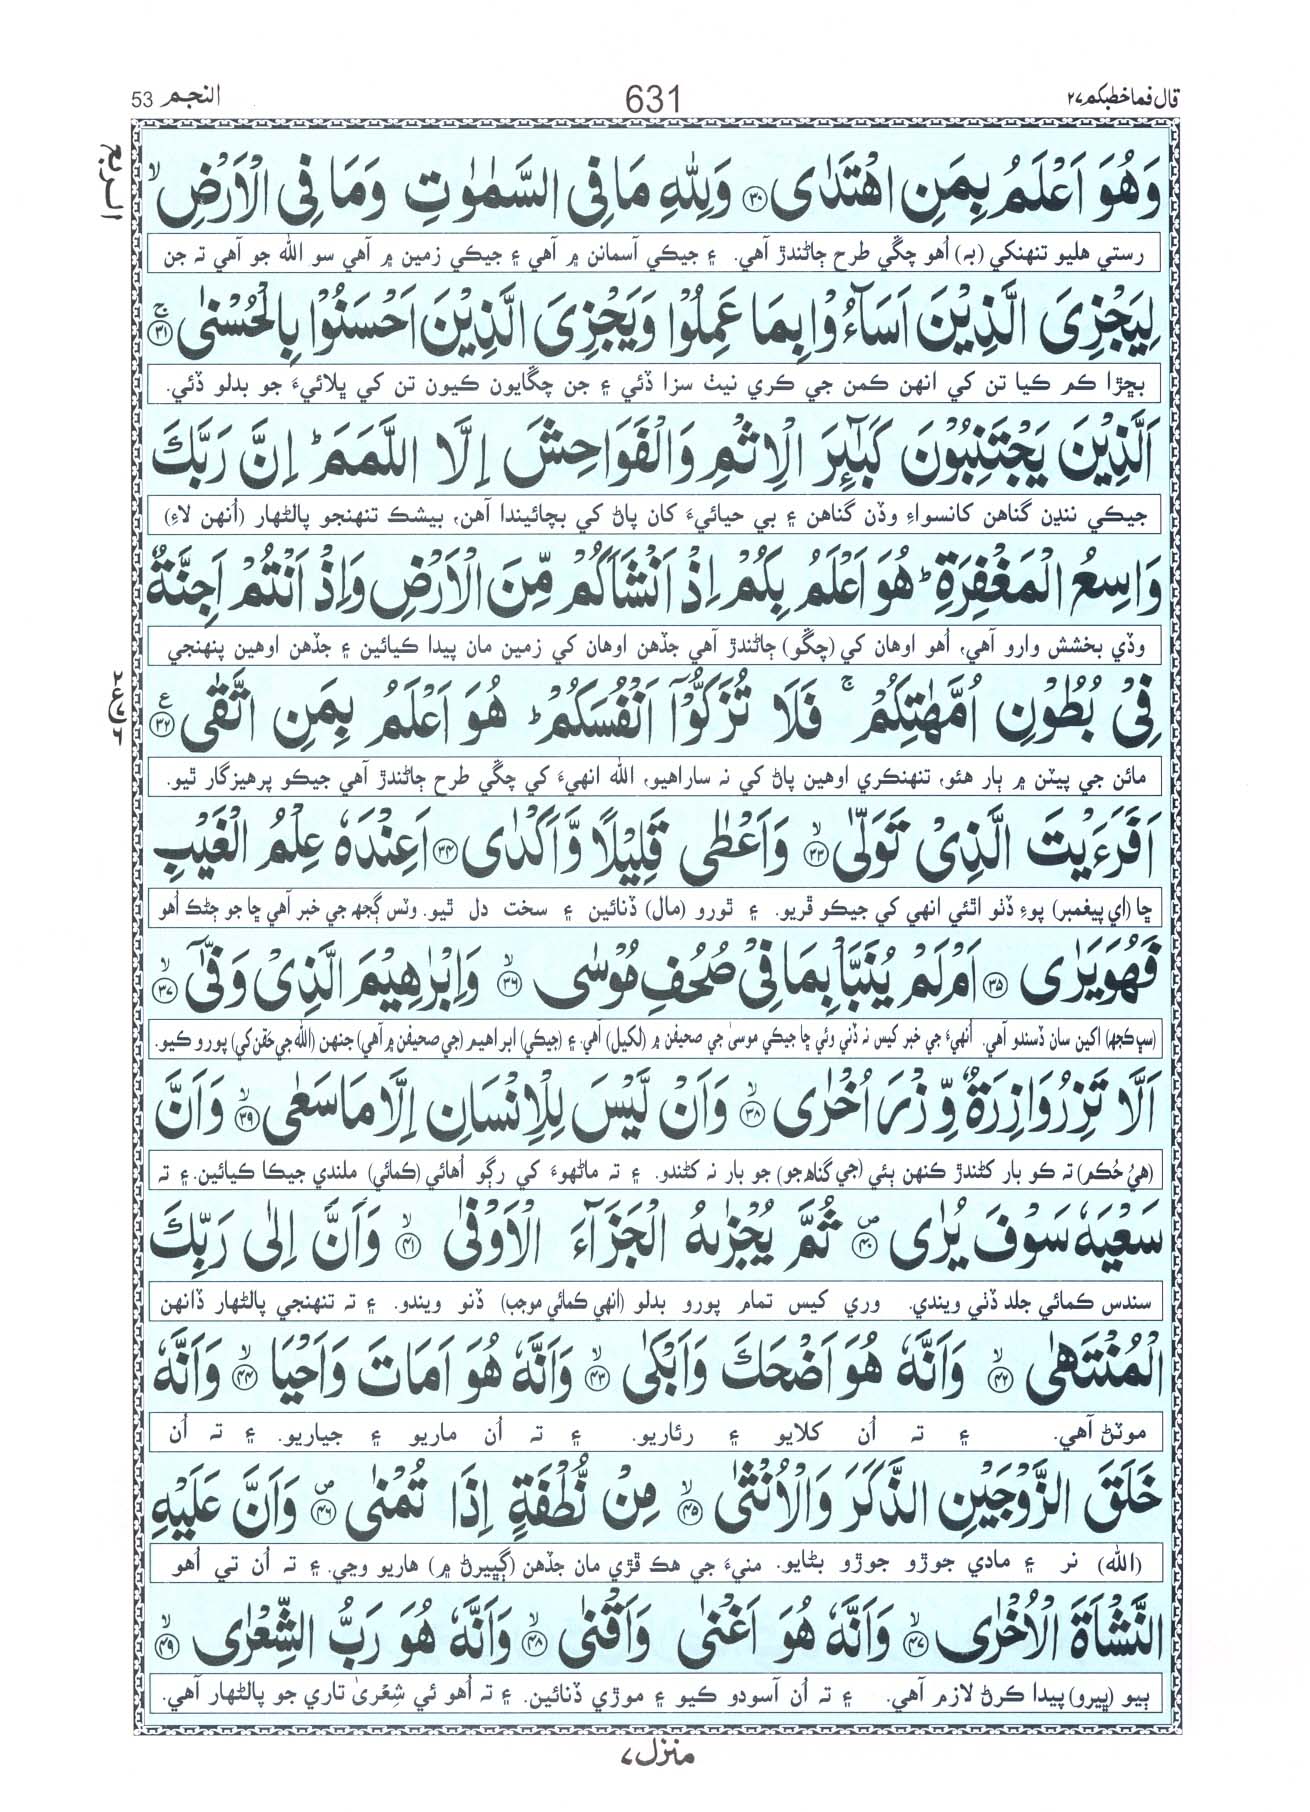 قال فما خطبکم ۲۷
631
النجم 53
وَهُوَ اَعْلَمُ بِمَنِ اهْتَدٰی ۝۳۰ وَلِلّٰهِ مَا فِی السَّمٰوٰتِ وَمَا فِی الْاَرْضِ ۙ
الربع
رستي هليو تنهنکي (به) اُهو چڱي طرح ڄاڻندڙ آهي. ۽ جيڪي آسمانن ۾ آهي ۽ جيڪي زمين ۾ آهي سو الله جو آهي ته جن
لِیَجْزِیَ الَّذِیْنَ اَسَآءُوْا بِمَا عَمِلُوْا وَیَجْزِیَ الَّذِیْنَ اَحْسَنُوْا بِالْحُسْنٰی ۝۳۱ ۚ
بڇڙا ڪم ڪيا تن کي انهن ڪمن جي ڪري نيٺ سزا ڏئي ۽ جن چڱايون ڪيون تن کي ڀلائيءَ جو بدلو ڏئي.
اَلَّذِیْنَ یَجْتَنِبُوْنَ کَبٰٓئِرَ الْاِثْمِ وَالْفَوَاحِشَ اِلَّا اللَّمَمَ ؕ اِنَّ رَبَّكَ
جيڪي ننڍن گناهن کانسواءِ وڏن گناهن ۽ بي حيائيءَ کان پاڻ کي بچائيندا آهن، بيشڪ تنهنجو پالڻهار (اُنهن لاءِ)
وَاسِعُ الْمَغْفِرَةِ ؕ هُوَ اَعْلَمُ بِکُمْ اِذْ اَنْشَاَکُمْ مِّنَ الْاَرْضِ وَاِذْ اَنْتُمْ اَجِنَّةٌ
وڏي بخشش وارو آهي، اُهو اوهان کي (چڱو) ڄاڻندڙ آهي جڏهن اوهان کي زمين مان پيدا ڪيائين ۽ جڏهن اوهين پنهنجي
فِیْ بُطُوْنِ اُمَّهٰتِکُمْ ۚ فَلَا تُزَکُّوْۤا اَنْفُسَکُمْ ؕ هُوَ اَعْلَمُ بِمَنِ اتَّقٰی ۝۳۲ ع
مائن جي پيٽن ۾ ٻار هئو، تنهنڪري اوهين پاڻ کي نه ساراهيو، الله انهيءَ کي چڱي طرح ڄاڻندڙ آهي جيڪو پرهيزگار ٿيو.
اَفَرَءَیْتَ الَّذِیْ تَوَلّٰی ۝۳۳ ۙ وَاَعْطٰی قَلِیْلًا وَّاَکْدٰی ۝۳۴ اَعِنْدَهٗ عِلْمُ الْغَیْبِ
ڇا (اي پيغمبر) پوءِ ڏٺو اٿئي انهي کي جيڪو ڦريو. ۽ ٿورو (مال) ڏنائين ۽ سخت دل ٿيو. وٽس ڳجهه جي خبر آهي ڇا جو ڄڻڪ اُهو
فَهُوَیَرٰی ۝۳۵ اَمْ لَمْ یُنَبَّاْ بِمَا فِیْ صُحُفِ مُوْسٰی ۝۳۶ ۙ وَاِبْرٰهِیْمَ الَّذِیْ وَفّٰۤی ۝۳۷ ۙ
(سڀ ڪجهه) اکين سان ڏسندو آهي. اُنهيءَ جي خبر کيس نه ڏني وئي ڇا جيڪو موسيٰ جي صحيفن ۾ (لکيل) آهي. ۽ (جيڪي) ابراهيم (جي صحيفن ۾ آهي) جنهن (الله جي حَقن کي) پورو ڪيو.
اَلَّا تَزِرُ وَازِرَةٌ وِّزْرَ اُخْرٰی ۝۳۸ ۙ وَاَنْ لَّیْسَ لِلْاِنْسَانِ اِلَّا مَا سَعٰی ۝۳۹ ۙ وَاَنَّ
(هيءُ حُڪم) ته ڪو بار کڻندڙ ڪنهن ٻئي (جي گناهه جو) جو بار نه کڻندو. ۽ ته ماڻهوءَ کي رڳو اُهائي (ڪمائي) ملندي جيڪا ڪيائين. ۽ ته
سَعْیَهٗ سَوْفَ یُرٰی ۝۴۰ ۪ ثُمَّ یُجْزٰىهُ الْجَزَآءَ الْاَوْفٰی ۝۴۱ ۙ وَاَنَّ اِلٰی رَبِّكَ
سندس ڪمائي جلد ڏٺي ويندي. وري کيس تمام پورو بدلو (انهي ڪمائي موجب) ڏنو ويندو. ۽ ته تنهنجي پالڻهار ڏانهن
الْمُنْتَهٰی ۝۴۲ ۙ وَاَنَّهٗ هُوَ اَضْحَكَ وَاَبْکٰی ۝۴۳ ۙ وَاَنَّهٗ هُوَ اَمَاتَ وَاَحْیَا ۝۴۴ ۙ وَاَنَّهٗ
موٽڻ آهي. ۽ ته اُن کلايو ۽ رئاريو. ۽ ته اُن ماريو ۽ جياريو. ۽ ته اُن
خَلَقَ الزَّوْجَیْنِ الذَّکَرَ وَالْاُنْثٰی ۝۴۵ ۙ مِنْ نُّطْفَةٍ اِذَا تُمْنٰی ۝۴۶ ۪ وَاَنَّ عَلَیْهِ
(الله) نر ۽ مادي جوڙو جوڙو بڻايو. منيءَ جي هڪ ڦڙي مان جڏهن (ڳڀيرڻ ۾) هاريو وڃي. ۽ ته اُن تي اُهو
النَّشْاَةَ الْاُخْرٰی ۝۴۷ ۙ وَاَنَّهٗ هُوَ اَغْنٰی وَاَقْنٰی ۝۴۸ ۙ وَاَنَّهٗ هُوَ رَبُّ الشِّعْرٰی ۝۴۹ ۙ
ٻيو (ڀيرو) پيدا ڪرڻ لازم آهي. ۽ ته اُن آسودو ڪيو ۽ موڙي ڏنائين. ۽ ته اُهو ئي شِعريٰ تاري جو پالڻهار آهي.
منزل ۷